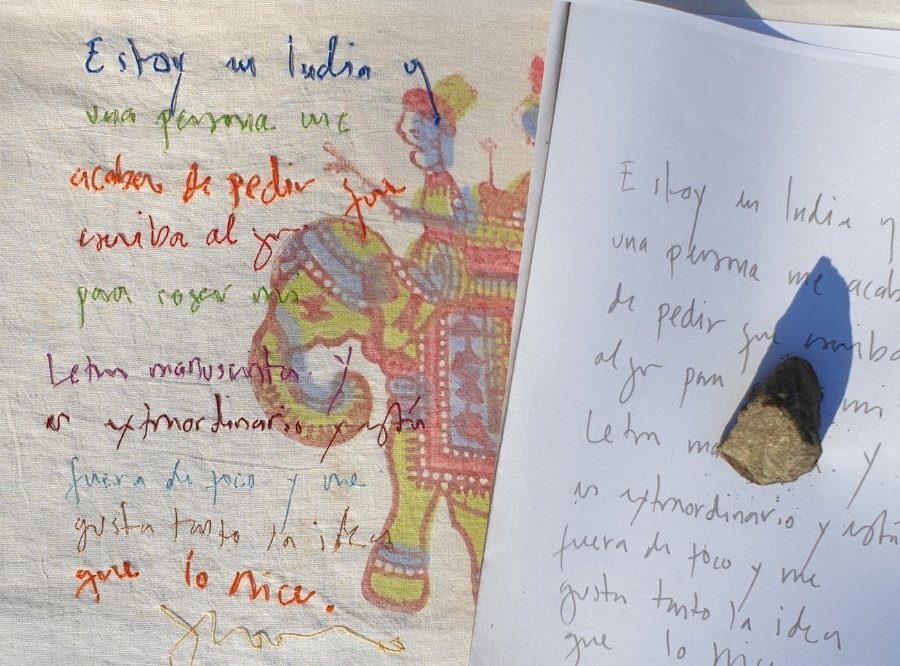 Estoy en India y
una persona me
acaba de pedir que
escriba al go
para coger mi
Letra manuscrita y
es extraordinario y está
fuera de foco y me
gusta tanto la idea
que lo hice.
Estoy en India y
una persona me acab
de pedir que escriba
al go para mi
Letra ma y
es extraordinario y está
fuera de foco y me
gusta tanto la idea
que lo hice